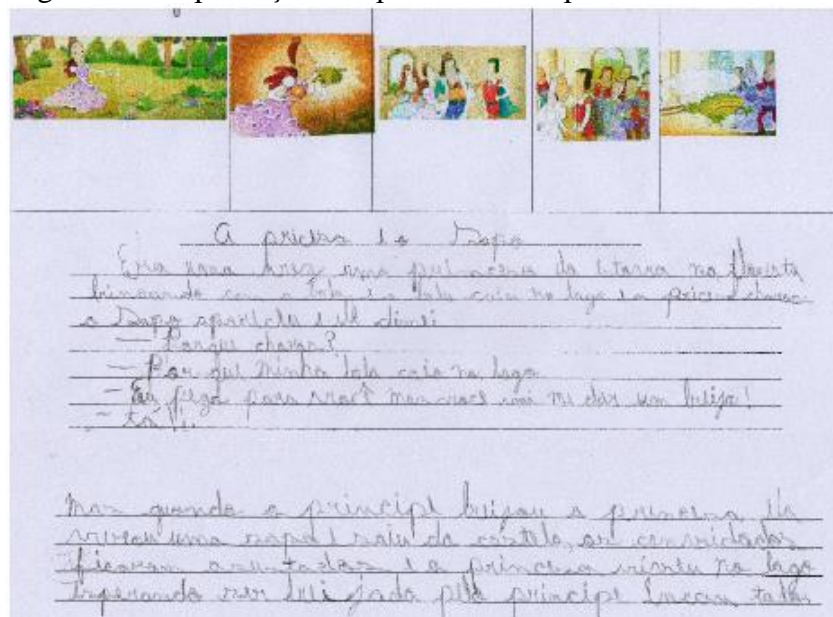 A pricesa e o Sapo
Era uma vez uma princesa la na floresta
brincando com a bola e a bola caiu no lago e a pricesa
o Sapo
— Porque choras?
— Por que minha bola caio no lago
— Eu pego para você mas você mi dar um beijo!
— tá
mas quando o principe beijou a princesa ela
virou uma sapa e saiu do castelo, os convidados
ficaram asustados e a princesa no lago
esperando ser bei jada pelo principe encan tado